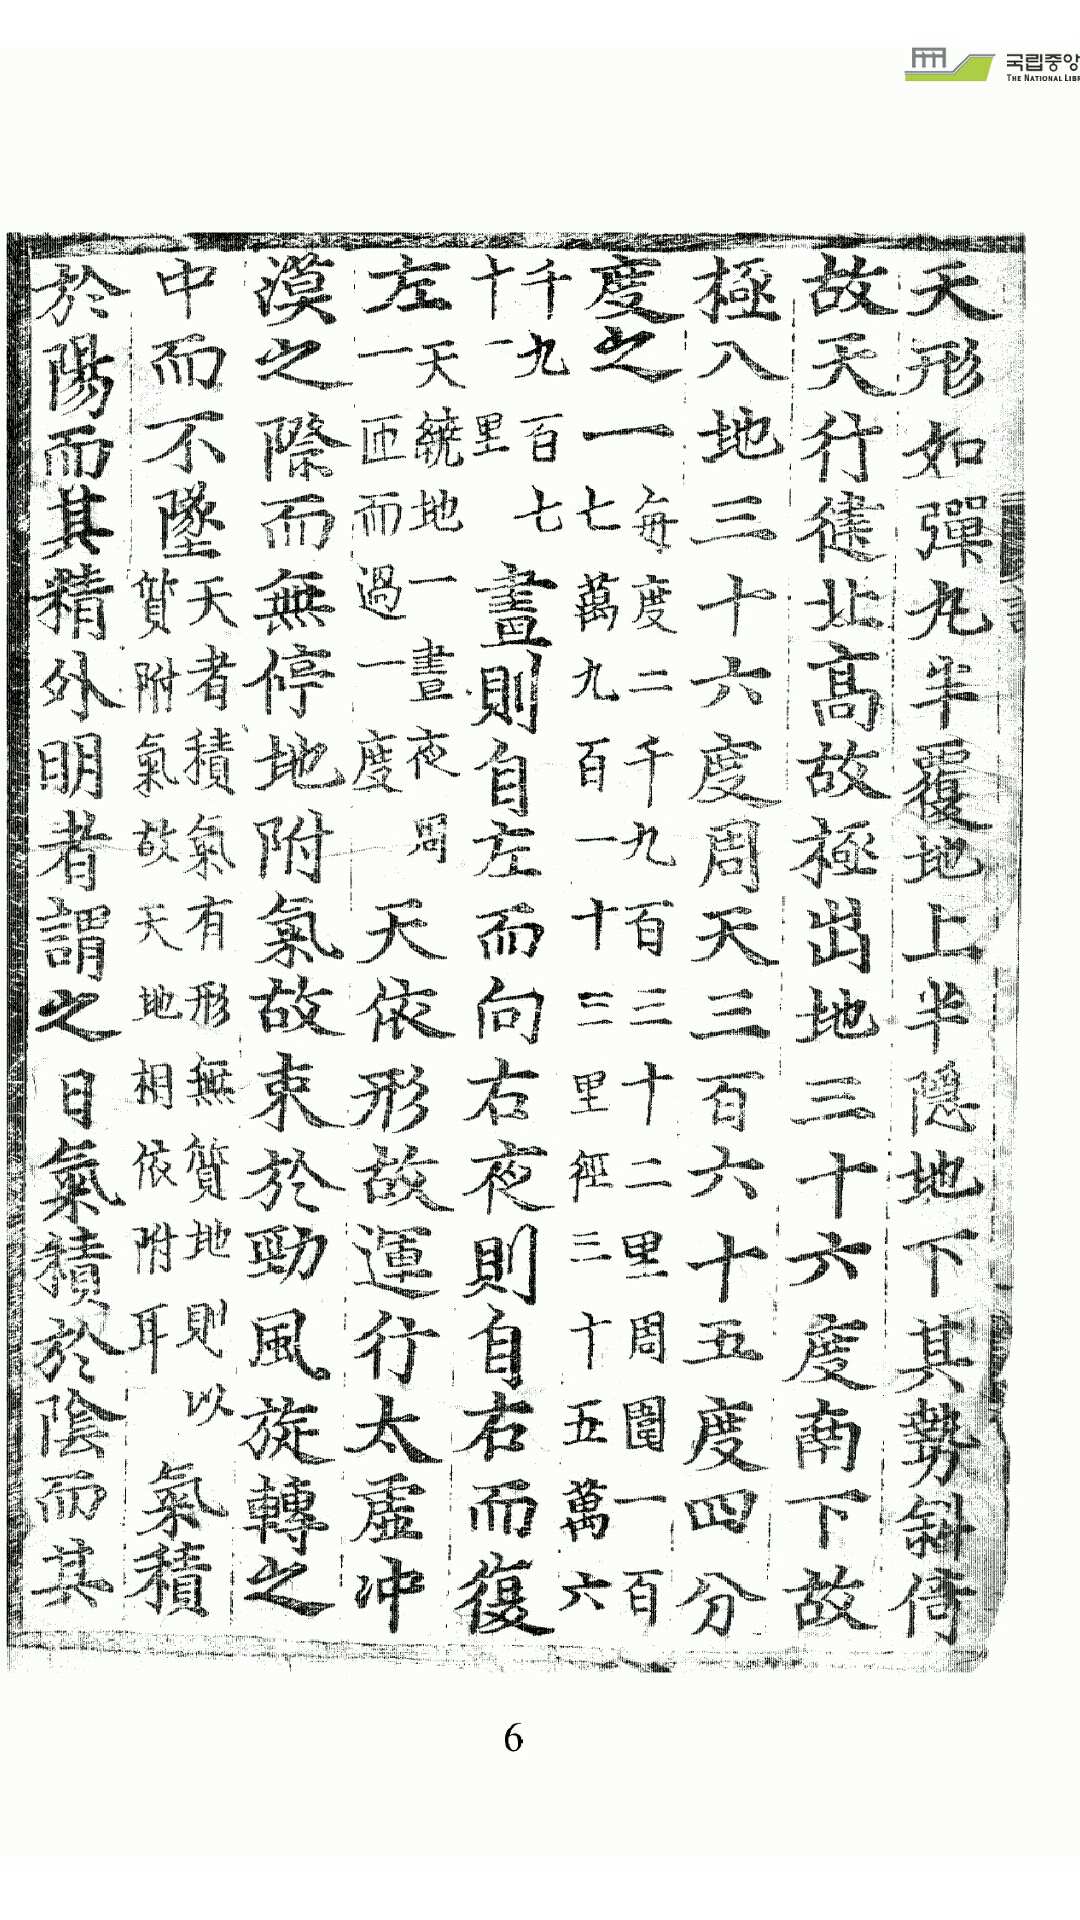 국립중앙
THE NATIONAL LIBR
天形如彈丸半覆地上半隱地下其勢斜倚
故天行健北高故極出地三十六度南下故
極入地三十六度周天三百六十五度四分
度之一每度二千九百三十二里周圍一百
七萬九百一十三里徑三十五萬六
千九百七
十一里晝則自左而向右夜則自右而復
左天繞地一晝夜周
一匝而過一度天依形故運行太虛冲
漠之際而無停地附氣故束於勁風旋轉之
中而不墜天者積氣有形無質地則以
質附氣故天地相依附耳氣積
於陽而其精外明者謂之日氣積於陰而其
6